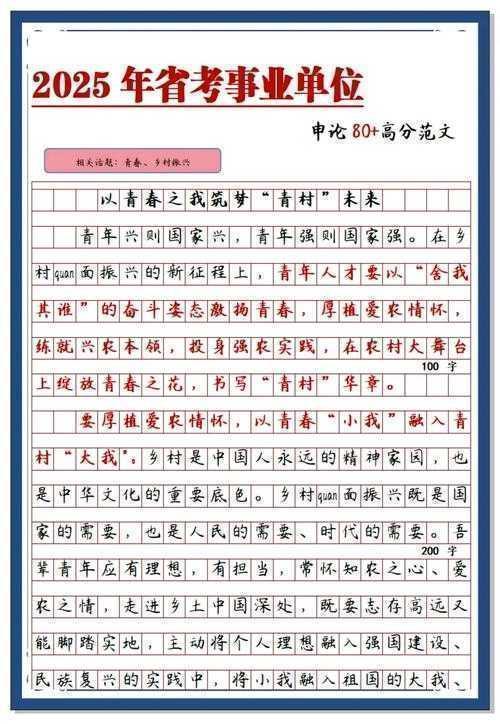 2025年省考事业单位
申论80+高分范文
相关话题：青春、乡村振兴
以青春之我筑梦“青村”未来
青年兴则国家兴，青年强则国家强。在乡
村quan面振兴的新征程上，青年人才要以“舍我
其谁”的奋斗姿态激扬青春，厚植爱农情怀，
练就兴农本领，投身强农实践，在农村大舞台
100 字
上绽放青春之花，书写“青村”华章。
要厚植爱农情怀，以青春“小我”融入青
村“大我”。乡村是中国人永远的精神家园，也
是中华文化的重要底色。乡村quan面振兴既是国
家的需要，也是人民的需要、时代的需要。吾
200 字
辈青年应有理想，有担当，常怀知农之心、爱
农之情，走进乡土中国深处，既要志存高远又
能脚踏实地，主动将个人理想融入强国建设、
民族复兴的实践中，将小我融入祖国的大我、